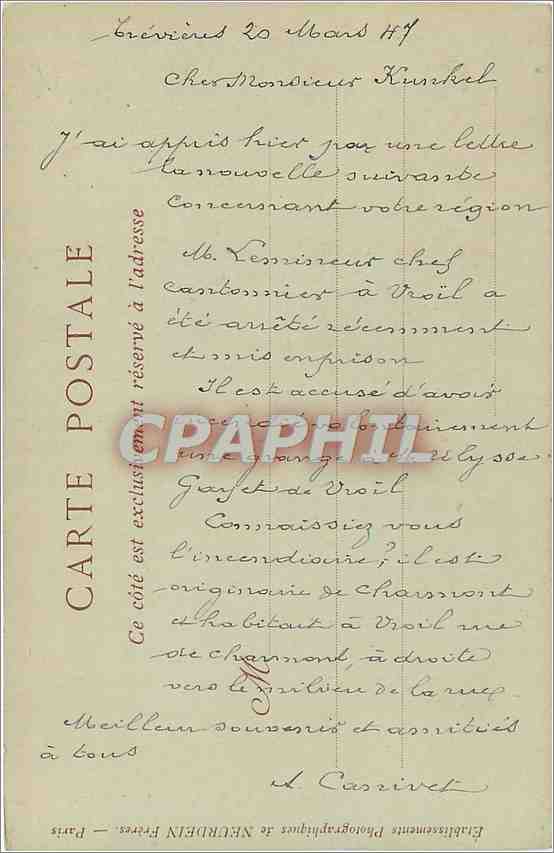 Trévières 20 Mars 47
Cher Monsieur Kunkel
J'ai appris hier par une lettre
la nouvelle suivante
concernant votre région
M. Lemineur chef
cantonnier à Vroïl a
été arrêté récemment
et mis en prison
Il est accusé d'avoir
incendié volontairement
une grange à Ulysse
Gayet de Vroïl
Connaissiez vous
l'incendiaire? il est
originaire de Charmont
et habitait à Vroïl rue
de Charmont, à droite
vers le milieu de la rue
Meilleur souvenir et amitiés
à tous
A. Canivet
CARTE POSTALE
Ce côté est exclusivement réservé à l'adresse
M
CPAPHIL
Établissements Photographiques de NEURDEIN Frères. — Paris